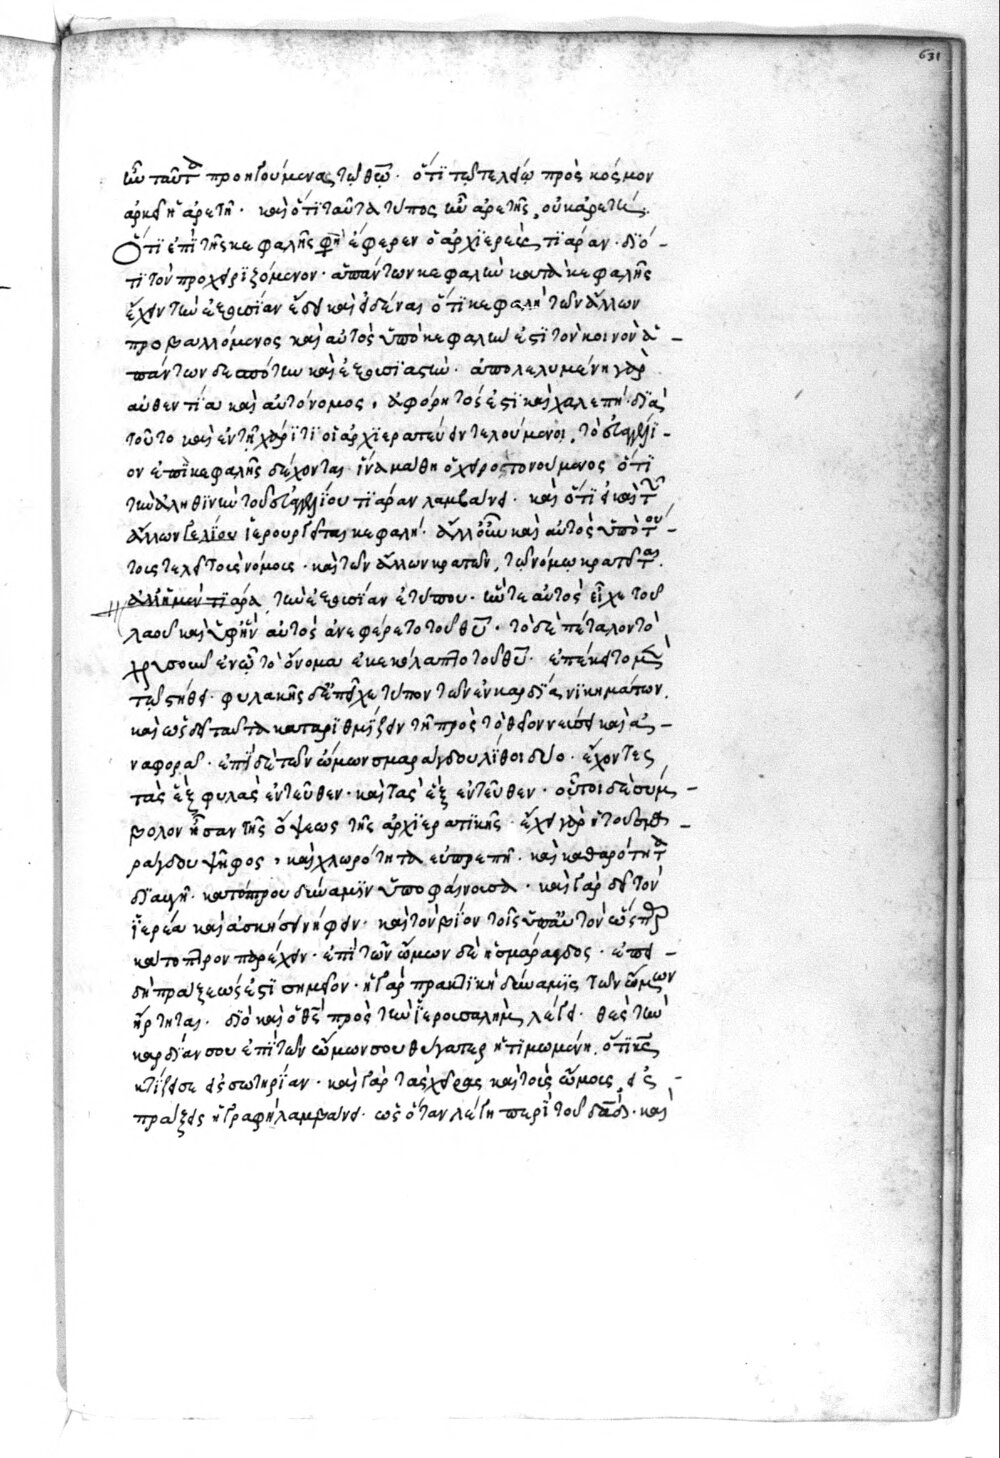 631
ὧν ταῦτα προηγούμενα τῷ θῶ. ὅτι τῷ τελείῳ πρὸς κόσμον
ἀρκεῖ ἡ ἀρετή. καὶ ὅτι ταῦτα τύπος ἦν ἀρετῆς, οὐκ ἀρετὴ.
Ὅτι ἐπὶ τῆς κεφαλῆς φησὶν ἔφερεν ὁ ἀρχιερεὺς τιάραν. διό-
τι τὸν προχειριζόμενον. ἁπάντων κεφαλὴν κατὰ κεφαλῆς
ἔχειν τὴν ἐξουσίαν ἔδει καὶ εἰδέναι ὅτι κεφαλὴ τῶν ἄλλων
προβαλλόμενος καὶ αὐτὸς ὑπὸ κεφαλήν ἐστι τὸν κοινὸν ἁ-
πάντων δεσπότην καὶ ἐξουσιαστὴν. ἀπολελυμένη γὰρ
αὐθεντία καὶ αὐτόνομος, ἀφόρητός ἐστι καὶ χαλεπή. διὰ
τοῦτο καὶ ἐν τῇ χάριτι οἱ ἀρχιερατεύειν τελούμενοι, τὸ εὐαγγέλι-
ον ἐπὶ κεφαλῆς δέχονται ἵνα μάθῃ ὁ χειροτονούμενος ὅτι
τὴν ἀληθινὴν τοῦ εὐαγγελίου τιάραν λαμβάνει. καὶ ὅτι εἰ καὶ τῶν
ἄλλων τελείου ἱερουργεῖται κεφαλή. ἀλλ' οὖν καὶ αὐτὸς ὑπὸ τού-
τοις τελεῖ τοῖς νόμοις. καὶ τῶν ἄλλων κρατῶν, τῷ νόμῳ κρατεῖται.
ἀλλ' ἡ μὲν τιάρα τὴν ἐξουσίαν ἐτύπου. ὥτε αὐτὸς εἶχε τοῦ
λαοῦ καὶ ὑφ' ἣν αὐτὸς ἀνεφέρετο τοῦ θῦ. τὸ δὲ πέταλον τὸ
χρυσοῦν ἐν ᾧ τὸ ὄνομα ἐκεκόλαπτο τοῦ θῦ. ἐπέκειτο μὲν
τῷ στήθει. φυλακῆς δὲ ἐπεῖχε τύπον τῶν ἐν καρδίᾳ νικημάτων.
καὶ ὡς δεῖ ταῦτα καταριθμίζειν τῇ πρὸς τὸ θεῖον νεύσει καὶ ἀ-
ναφορᾷ. ἐπὶ δὲ τῶν ὤμων σμαράγδου λίθοι δύο. ἔχοντες
τὰς ἓξ φυλὰς ἐντεῦθεν. καὶ τὰς ἓξ ἐντεῦθεν. οὗτοι δὲ σύμ-
βολον ἦσαν τῆς ὄψεως τῆς ἀρχιερατικῆς. ἔχει γὰρ ἡ τοῦ σμα-
ράγδου ψῆφος, καὶ χλωρότητα εὐπρεπῆ. καὶ καθαρότητα
διαυγῆ. κατόπτρου δύναμιν ὑποφαίνουσα. καὶ γὰρ δεῖ τὸν
ἱερέα καὶ ἀσκήσει νήφειν. καὶ τὸν βίον τοῖς ὑπ' αὐτὸν ὥσπερ
κάτοπτρον παρέχειν. ἐπὶ τῶν ὤμων δὲ ἡ σμάραγδος. ἐπει-
δὴ πράξεώς ἐστι σημεῖον. ἡ γὰρ πρακτικὴ δύναμις τῶν ὤμων
ἤρτηται. διὸ καὶ ὁ θς πρὸς τὴν Ἱερουσαλὴμ λέγει. θὲς τὴν
καρδίαν σου ἐπὶ τῶν ὤμων σου θύγατερ ἠτιμωμένη. ὅτι κς
κτίζει σε εἰς σωτηρίαν. καὶ γὰρ τὰς χεῖρας καὶ τοὺς ὤμους, εἰς
πράξεις ἡ γραφὴ λαμβάνει. ὡς ὅταν λέγῃ περὶ τοῦ δαδ. καὶ